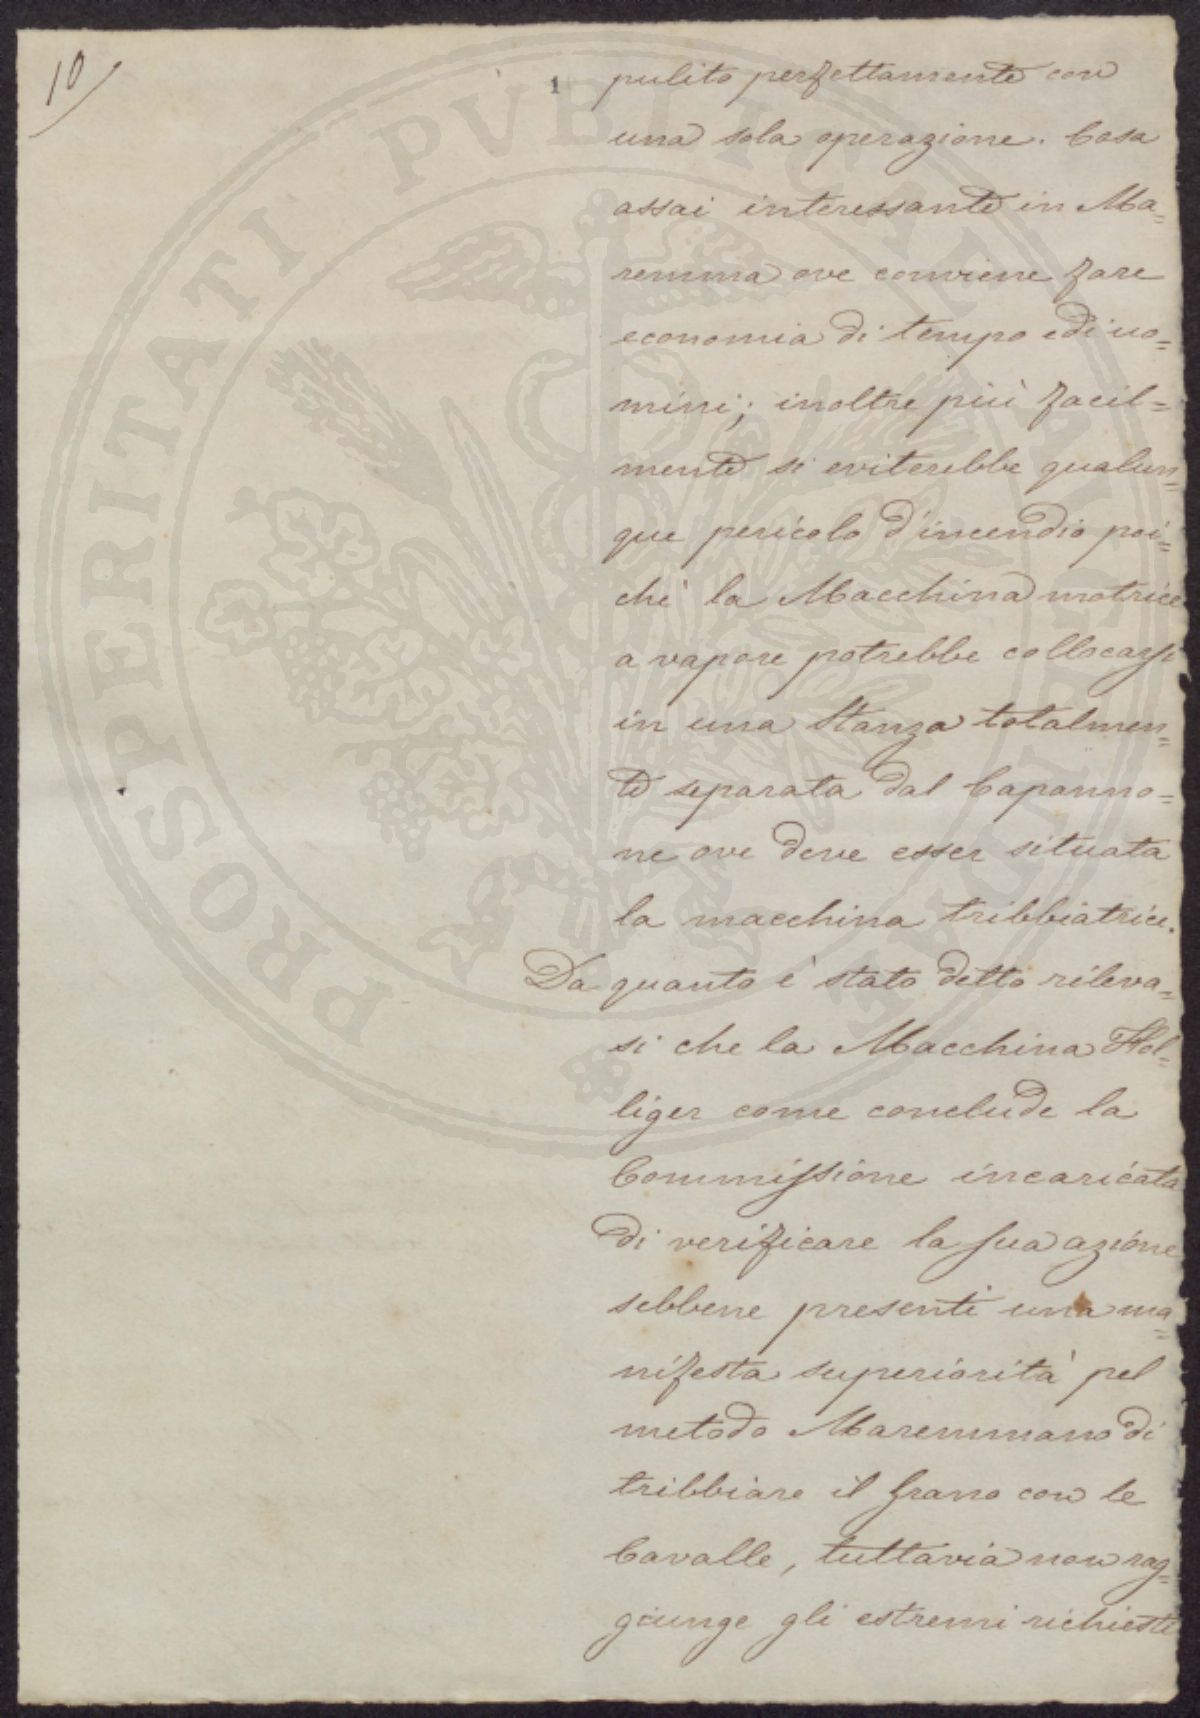 10
1
pulito perfettamente con
una sola operazione. Cosa
assai interessante in Ma=
remma ove conviene fare
economia di tempo e di uo=
mini; inoltre più facil=
mente si eviterebbe qualun=
que pericolo d'incendio poi=
chè la Macchina motrice
a vapore potrebbe collocarsi
in una Stanza totalmen=
te separata dal Capanno=
ne ove deve esser situata
la macchina tribbiatrice.
Da quanto è stato detto rileva=
si che la Macchina Hol=
liger come conclude la
Commissione incaricata
di verificare la sua azione
sebbene presenti una ma=
nifesta superiorità pel
metodo Maremmano di
tribbiare il Grano con le
Cavalle, tuttavia non rag=
giunge gli estremi richiesti
PROSPERITATI PUBLICAE AUGENDAE